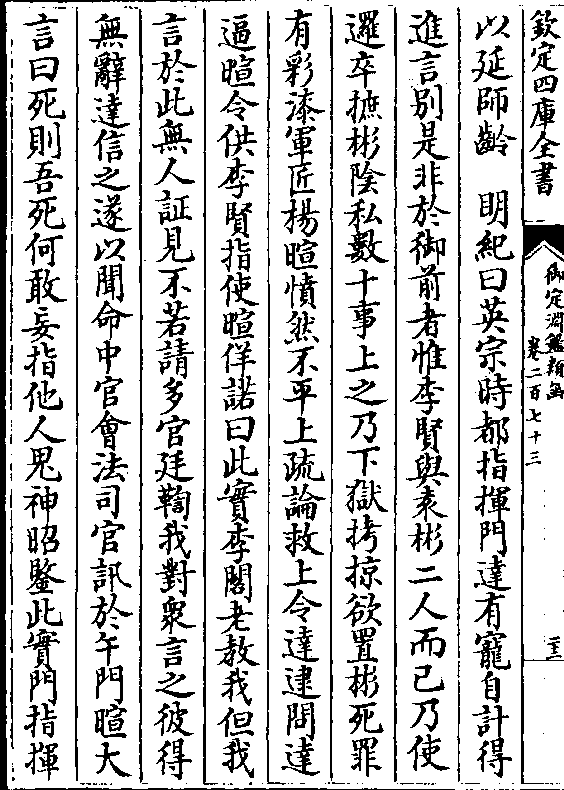 欽定四庫全書
御定淵鑑類函
卷二百七十三
二十三
以延師齡　明紀曰英宗時都指揮門達有寵自計得
進言別是非於御前者惟李賢與袁彬二人而已乃使
邏卒摭彬陰私數十事上之乃下獄拷掠欲置彬死罪
有彩漆軍匠楊暄憤然不平上疏論救上令達逮問達
逼暄令供李賢指使暄佯諾曰此實李閣老教我但我
言於此無人証見不若請多官廷鞫我對衆言之彼得
無辭達信之遂以聞命中官會法司官訊於午門暄大
言曰死則吾死何敢妄指他人鬼神昭鑒此實門指揮